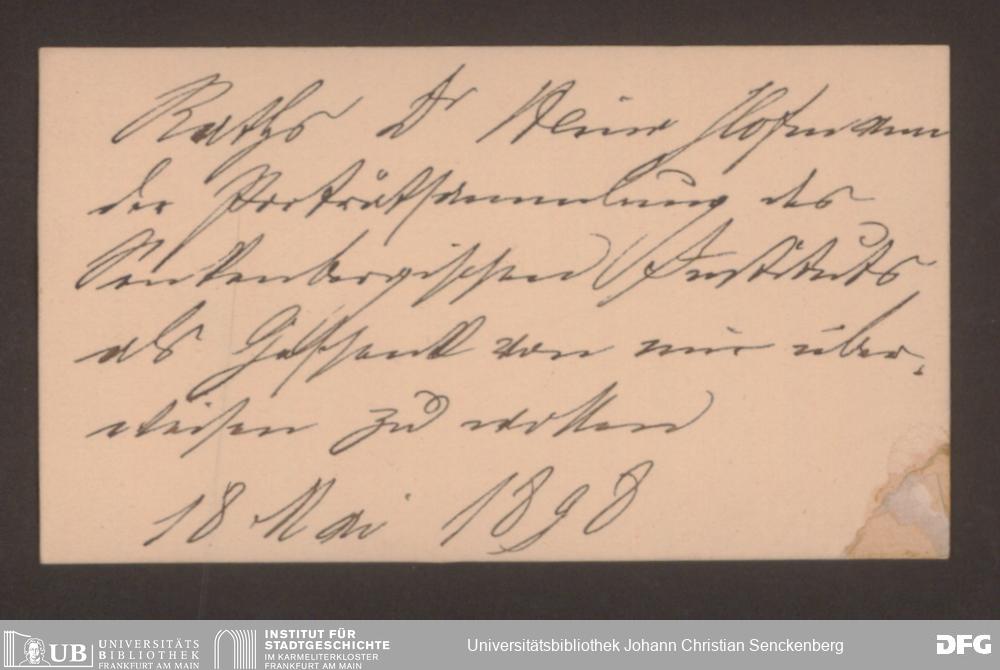 Raths Dr Heinr Hofmann
der Porträtsammlung des
Senkenbergischen Instituts
als Geschenk von mir über-
weisen zu wollen
18 Mai 1898
UB UNIVERSITÄTS
BIBLIOTHEK
FRANKFURT AM MAIN
INSTITUT FÜR
STADTGESCHICHTE
IM KARMELITERKLOSTER
FRANKFURT AM MAIN
Universitätsbibliothek Johann Christian Senckenberg
DFG